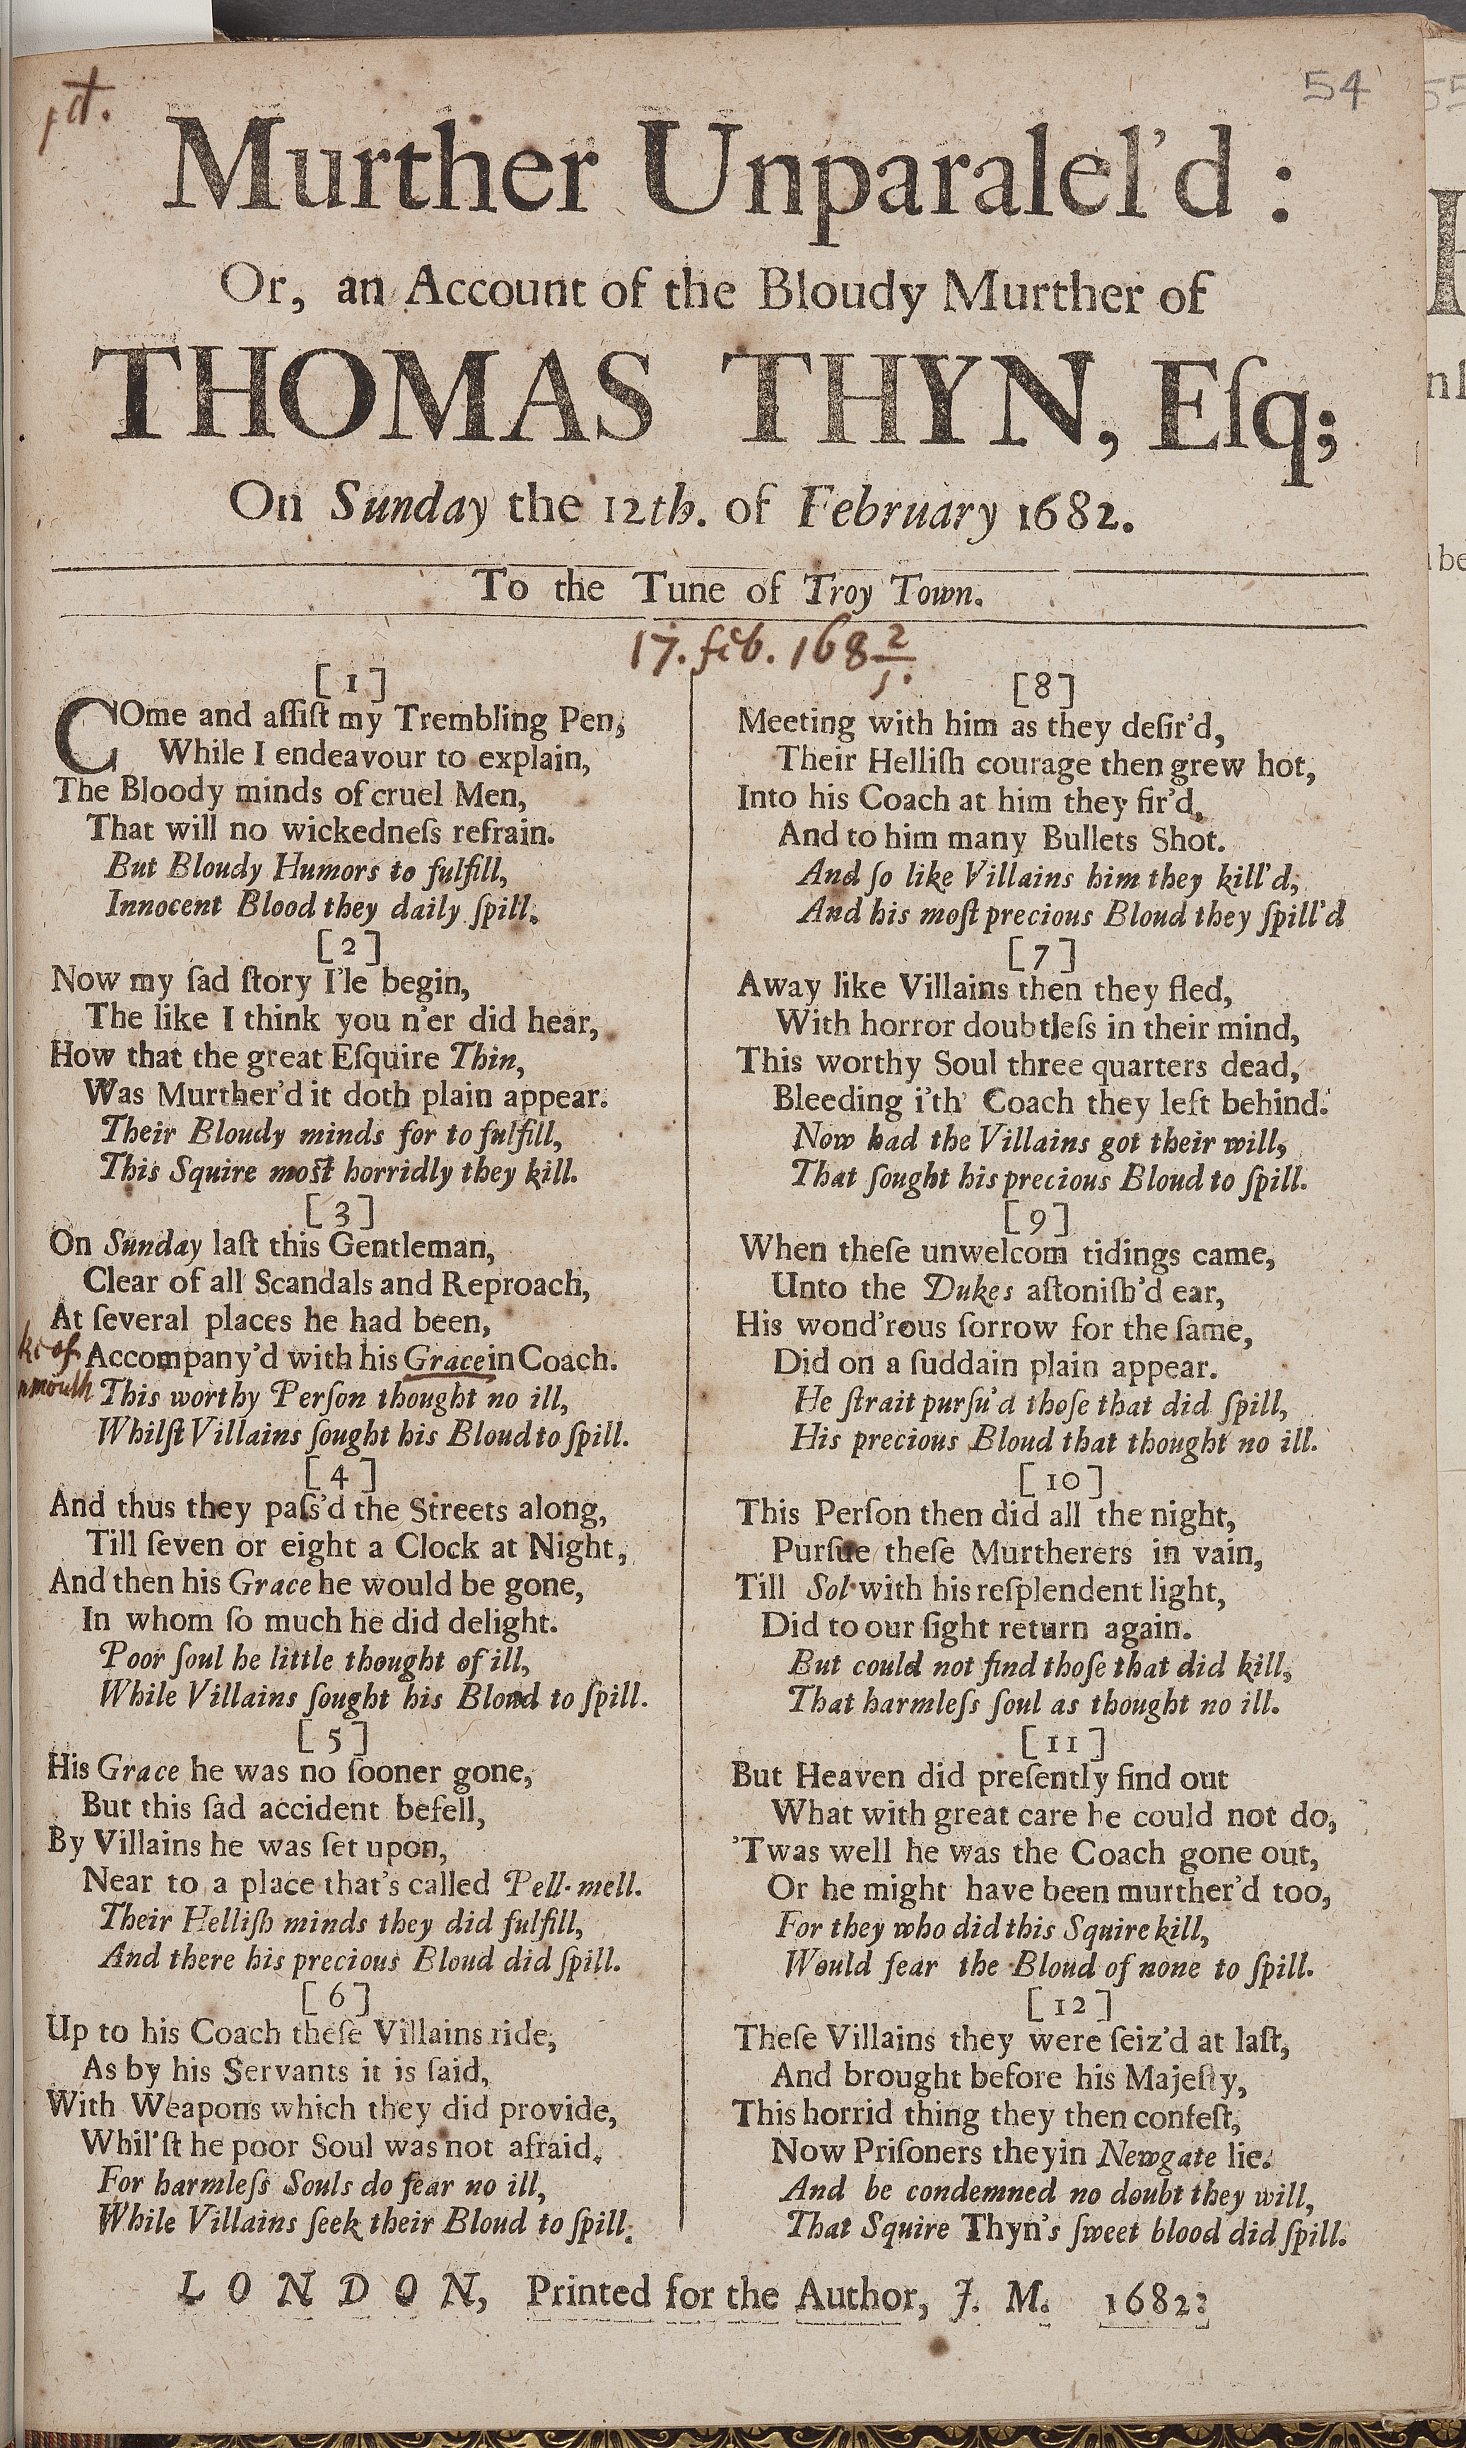 1d.
54
Murther Unparalel'd :
Or, an Account of the Bloudy Murther of
THOMAS THYN, Eſq;
On Sunday the 12th. of February 1682.
To the Tune of Troy Town.
17. feb. 168 2/1.
[ 1 ]
COme and aſſiſt my Trembling Pen,
While I endeavour to explain,
The Bloody minds of cruel Men,
That will no wickedneſs refrain.
But Bloudy Humors to fulfill,
Innocent Blood they daily ſpill.
[ 2 ]
Now my ſad ſtory I'le begin,
The like I think you n'er did hear,
How that the great Eſquire Thin,
Was Murther'd it doth plain appear.
Their Bloudy minds for to fulfill,
This Squire moſt horridly they kill.
[ 3 ]
On Sunday laſt this Gentleman,
Clear of all Scandals and Reproach,
At ſeveral places he had been,
ke of
Accompany'd with his Grace in Coach.
nmouth
This worthy Perſon thought no ill,
Whilſt Villains ſought his Bloud to ſpill.
[ 4 ]
And thus they paſs'd the Streets along,
Till ſeven or eight a Clock at Night,
And then his Grace he would be gone,
In whom ſo much he did delight.
Poor ſoul he little thought of ill,
While Villains ſought his Bloud to ſpill.
[ 5 ]
His Grace he was no ſooner gone,
But this ſad accident befell,
By Villains he was ſet upon,
Near to a place that's called Pell-mell.
Their Helliſh minds they did fulfill,
And there his precious Bloud did ſpill.
[ 6 ]
Up to his Coach theſe Villains ride,
As by his Servants it is ſaid,
With Weapons which they did provide,
Whil'ſt he poor Soul was not afraid.
For harmleſs Souls do fear no ill,
While Villains ſeek their Bloud to ſpill.
[8]
Meeting with him as they deſir'd,
Their Helliſh courage then grew hot,
Into his Coach at him they fir'd,
And to him many Bullets Shot.
And ſo like Villains him they kill'd,
And his moſt precious Bloud they ſpill'd
[ 7 ]
Away like Villains then they fled,
With horror doubtleſs in their mind,
This worthy Soul three quarters dead,
Bleeding i'th' Coach they left behind.
Now had the Villains got their will,
That ſought his precious Bloud to ſpill.
[ 9 ]
When theſe unwelcom tidings came,
Unto the Dukes aſtoniſh'd ear,
His wond'rous ſorrow for the ſame,
Did on a ſuddain plain appear.
He ſtrait purſu'd thoſe that did ſpill,
His precious Bloud that thought no ill.
[ 10 ]
This Perſon then did all the night,
Purſue theſe Murtherers in vain,
Till Sol with his reſplendent light,
Did to our ſight return again.
But could not find thoſe that did kill,
That harmleſs ſoul as thought no ill.
[ 11 ]
But Heaven did preſently find out
What with great care he could not do,
'Twas well he was the Coach gone out,
Or he might have been murther'd too,
For they who did this Squire kill,
Would fear the Bloud of none to ſpill.
[ 12 ]
Theſe Villains they were ſeiz'd at laſt,
And brought before his Majeſty,
This horrid thing they then confeſt,
Now Priſoners they in Newgate lie.
And be condemned no doubt they will,
That Squire Thyn's ſweet blood did ſpill.
LONDON, Printed for the Author, J. M. 1682.